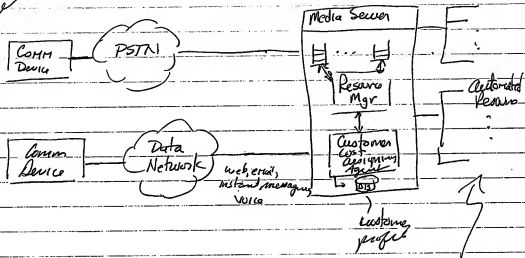 Media Server
Comm
Device
PSTN
Resource
Mgr
Automated
Resource
Comm
Device
Data
Network
web, email,
instant messaging
voice
Customer
Cost
Assigning
Agent
customer
profile